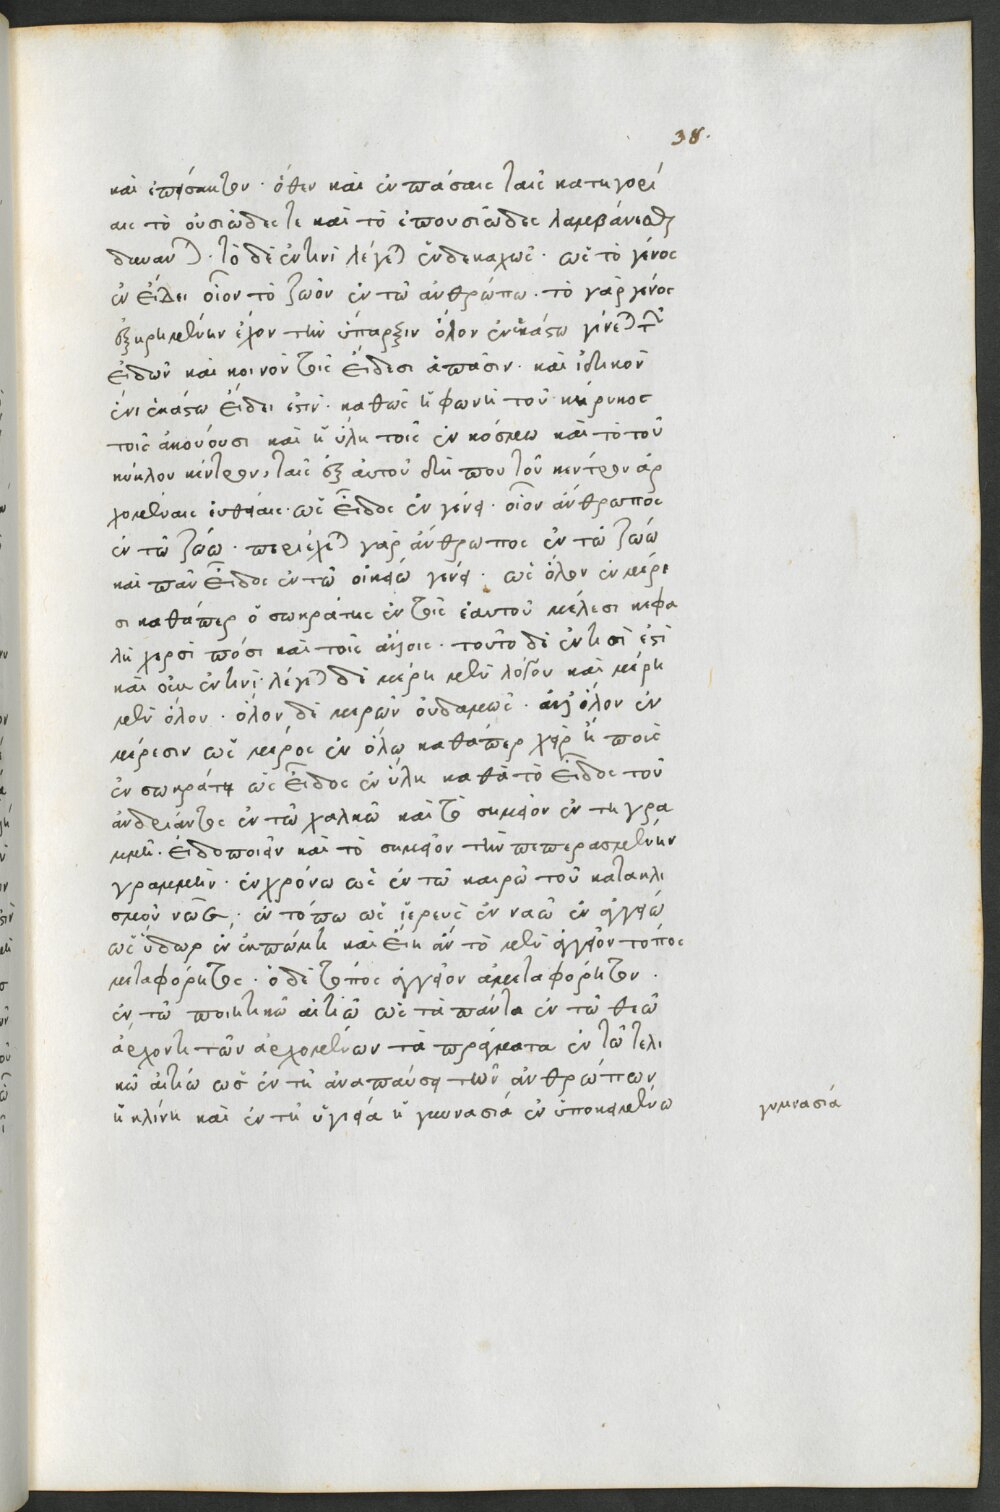 38.
καὶ ἐπείσακτον · ὅθεν καὶ ἐν πάσαις ταῖς κατηγορί
αις τὸ οὐσιῶδες τε καὶ τὸ ἐπουσιῶδες λαμβάνεσθαι
δύναται · τὸ δὲ ἔν τινι λέγεται ἑνδεκαχῶς · ὡς τὸ γένος
ἐν εἴδει οἷον τὸ ζῶον ἐν τῶ ἀνθρώπω · τὸ γὰρ γένος
ἐξηρημένην ἔχον τὴν ὕπαρξιν ὅλον ἐν ἑκάστω γίνεται τῶν
εἰδῶν καὶ κοινὸν τοῖς εἴδεσι ἅπασιν · καὶ ἰδικὸν
ἑνὶ ἑκάστω εἴδει ἐστίν · καθὼς ἡ φωνὴ τοῦ κήρυκος
τοῖς ἀκούουσι καὶ ἡ ὕλη τοῖς ἐν κόσμω καὶ τὸ τοῦ
κύκλου κέντρον, ταῖς ἐξ αὐτοῦ δή που τοῦ κέντρου ἀρ
χομέναις εὐθείαις · ὡς εἶδος ἐν γένει · οἷον ἄνθρωπος
ἐν τῶ ζώω · περιέχεται γὰρ ἄνθρωπος ἐν τῶ ζώω
καὶ πᾶν εἶδος ἐν τῶ οἰκείω γένει · ὡς ὅλον ἐν μέρε
σι καθάπερ ὁ σωκράτης ἐν τοῖς ἑαυτοῦ μέλεσι κεφα
λῆ χερσὶ πόσι καὶ τοῖς ἄλλοις · τοῦτο δὲ ἔν τισὶ ἐστὶ
καὶ οὐκ ἔν τινι · λέγεται δὲ μέρη μὲν λόγου καὶ μέρη
μὲν ὅλου · ὅλον δὲ μερῶν οὐδαμῶς · ἀλλ' ὅλον ἐν
μέρεσιν ὡς μέρος ἐν ὅλω καθάπερ χεὶρ ἢ ποῦς
ἐν σωκράτει ὡς εἶδος ἐν ὕλη καθὰ τὸ εἶδος τοῦ
ἀνδριάντος ἐν τῶ χαλκῶ καὶ τὸ σημεῖον ἐν τῆ γρα
μμῆ · εἰδοποιεῖν καὶ τὸ σημεῖον τὴν πεπερασμένην
γραμμὴν · ἐν χρόνω ὡς ἐν τῶ καιρῶ τοῦ κατακλι
σμοῦ νῶε · ἐν τόπω ὡς ἱερεὺς ἐν ναῶ ἐν ἀγγείω
ὡς ὕδωρ ἐν ἐκπώματι καὶ εἴη ἂν τὸ μὲν ἀγγεῖον τόπος
μεταφόρητος · ὁ δὲ τόπος ἀγγεῖον ἀμεταφόρητον ·
ἐν τῶ ποιητικῶ αἰτίω ὡς τὰ πάντα ἐν τῶ θεῶ
ἄρχοντι τῶν ἀρχομένων τὰ πράγματα ἐν τῶ τελι
κῶ αἰτίω ὡς ἐν τῆ ἀναπαύσει τῶν ἀνθρώπων
ἡ κλίνη καὶ ἐν τῆ ὑγιεία ἡ γυμνασιά ἐν ὑποκειμένω
γυμνασιά